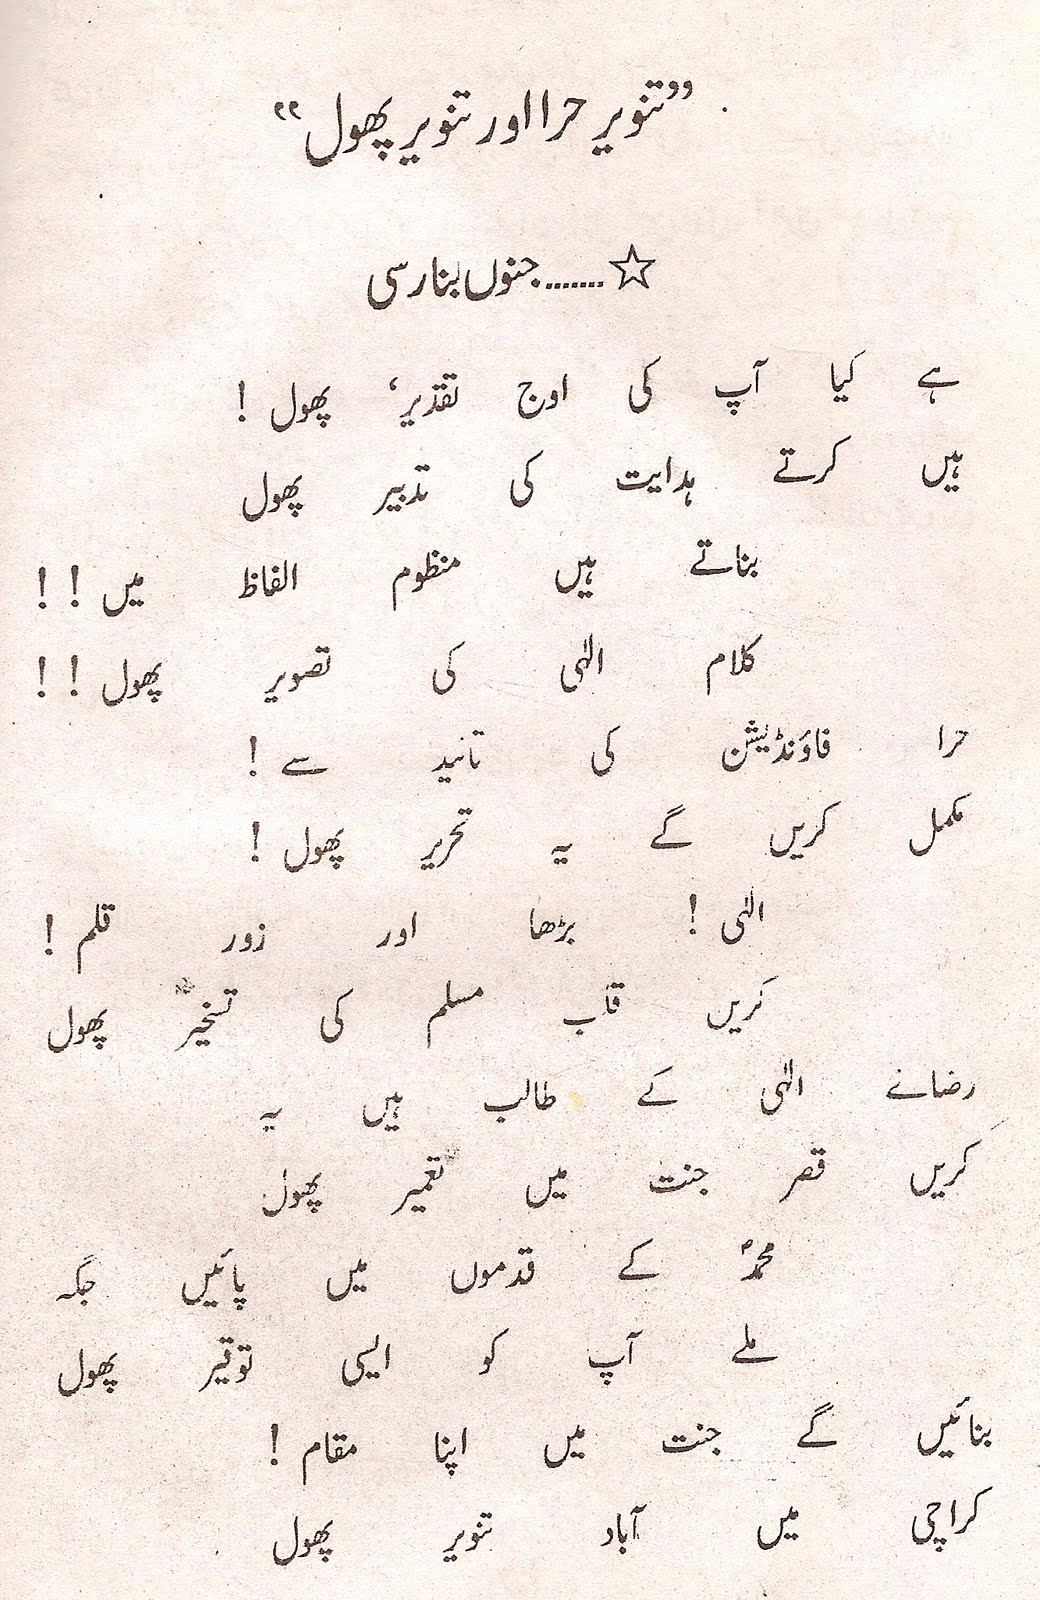 ”تنویر حرا اور تنویر پھول“
☆.......جنوں بنارسی
ہے کیا آپ کی اوج تقدیر، پھول !
ہیں کرتے ہدایت کی تدبیر پھول
بناتے ہیں منظوم الفاظ میں !!
کلام الٰہی کی تصویر پھول !!
حرا فاؤنڈیشن کی تائید سے !
مکمل کریں گے یہ تحریر پھول !
الٰہی ! بڑھا اور زور قلم !
کریں قلب مسلم کی تسخیر پھول
رضائے الٰہی کے طالب ہیں یہ
کریں قصر جنت میں تعمیر پھول
محمدؐ کے قدموں میں پائیں جگہ
ملے آپ کو ایسی توقیر پھول
بنائیں گے جنت میں اپنا مقام !
کراچی میں آباد تنویر پھول